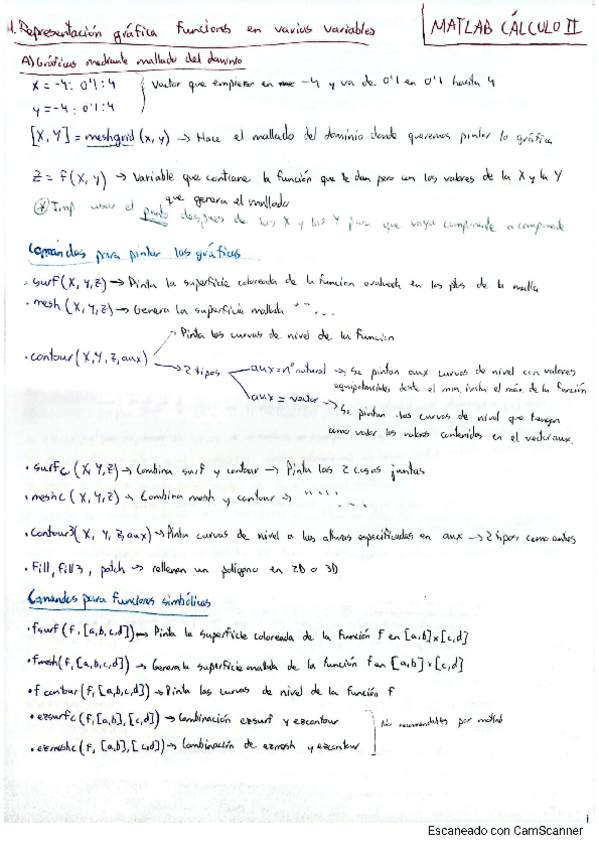 1. Representación gráfica funciones en varias variables
MATLAB CÁLCULO II
A) Gráficas mediante mallado del dominio
x = -4: 0'1:4
y = -4: 0'1:4
Vector que empieza en -4 y va de 0'1 en 0'1 hasta 4
[X, Y] = meshgrid (x, y) → Hace el mallado del dominio donde queremos pintar la gráfica
Z = f(X, Y) → Variable que contiene la función que te dan pero con los valores de la X y la Y
que genera el mallado
* Imp usar el punto después de las X y las Y para que vaya componente a componente
Comandos para pintar las gráficas
· surf (X, Y, Z) → Pinta la superficie coloreada de la función evaluada en los ptos de la malla
· mesh (X, Y, Z) → Genera la superficie mallada " " ...
→ Pinta las curvas de nivel de la función
· contour (X, Y, Z, aux)
→ 2 tipos
aux = nº natural → Se pintan aux curvas de nivel con valores
equiespaciados desde el min. hasta el máx. de la función
aux = vector →
Se pintan las curvas de nivel que tengan
como valor los valores contenidos en el vector aux.
· surfc (X, Y, Z) → Combina surf y contour → Pinta las 2 cosas juntas
· meshc (X, Y, Z) → Combina mesh y contour → " " " ...
· contour3 (X, Y, Z, aux) → Pinta curvas de nivel a las alturas especificadas en aux → 2 tipos como antes
· Fill, fill3, patch → rellenan un polígono en 2D o 3D
Comandos para funciones simbólicas
· fsurf (f, [a,b,c,d]) → Pinta la superficie coloreada de la función f en [a,b]x[c,d]
· fmesh (f, [a,b,c,d]) → Genera la superficie mallada de la función f en [a,b]x[c,d]
· fcontour (f, [a,b,c,d]) → Pinta las curvas de nivel de la función f
· ezsurfc (f, [a,b], [c,d]) → Combinación ezsurf y ezcontour
· ezmeshc (f, [a,b], [c,d]) → Combinación de ezmesh y ezcontour
No recomendables por matlab
1
Escaneado con CamScanner